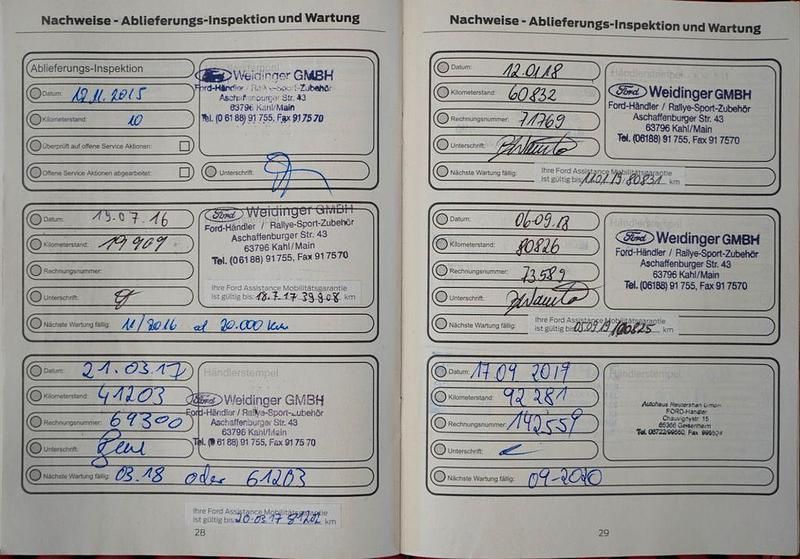 Nachweise - Ablieferungs-Inspektion und Wartung
Ablieferungs-Inspektion
Datum: 12.11.2015
Kilometerstand: 10
Überprüft auf offene Service Aktionen:
Offene Service Aktionen abgearbeitet:
Weidinger GMBH
Ford-Händler / Rallye-Sport-Zubehör
Aschaffenburger Str. 43
63796 Kahl/Main
Tel. (0 61 88) 91 755, Fax 91 75 70
Unterschrift:
Datum: 19.07.16
Kilometerstand: 19909
Rechnungsnummer:
Unterschrift:
Nächste Wartung fällig: 11/2016 od 20.000 km
Ford Weidinger GMBH
Ford-Händler / Rallye-Sport-Zubehör
Aschaffenburger Str. 43
63796 Kahl/Main
Tel. (0 61 88) 91 755, Fax 91 75 70
Ihre Ford Assistance Mobilitätsgarantie
ist gültig bis 18.7.17 39908 km
Datum: 21.03.17
Kilometerstand: 41203
Rechnungsnummer: 69300
Unterschrift:
Nächste Wartung fällig: 03.18 oder 61203
Händlerstempel
Ford Weidinger GMBH
Ford-Händler / Rallye-Sport-Zubehör
Aschaffenburger Str. 43
63796 Kahl/Main
Tel. (0 61 88) 91 755, Fax 91 75 70
Ihre Ford Assistance Mobilitätsgarantie
ist gültig bis km
28
Nachweise - Ablieferungs-Inspektion und Wartung
Datum: 12.01.18
Kilometerstand: 60832
Rechnungsnummer: 71769
Unterschrift:
Nächste Wartung fällig:
Händlerstempel
Ford Weidinger GMBH
Ford-Händler / Rallye-Sport-Zubehör
Aschaffenburger Str. 43
63796 Kahl/Main
Tel. (06188) 91 755, Fax 91 7570
Ihre Ford Assistance Mobilitätsgarantie
ist gültig bis 11.01.19 80831 km
Datum: 06.09.18
Kilometerstand: 80826
Rechnungsnummer: 73589
Unterschrift:
Nächste Wartung fällig:
Händlerstempel
Ford Weidinger GMBH
Ford-Händler / Rallye-Sport-Zubehör
Aschaffenburger Str. 43
63796 Kahl/Main
Tel. (06188) 91 755, Fax 91 7570
Ihre Ford Assistance Mobilitätsgarantie
ist gültig bis 05.09.19 100825 km
Datum: 17.09 2019
Kilometerstand: 92 281
Rechnungsnummer: 142559
Unterschrift:
Nächste Wartung fällig: 09-2020
Händlerstempel
Autohaus GmbH
FORD-Händler
15
65366 Geisenheim
29